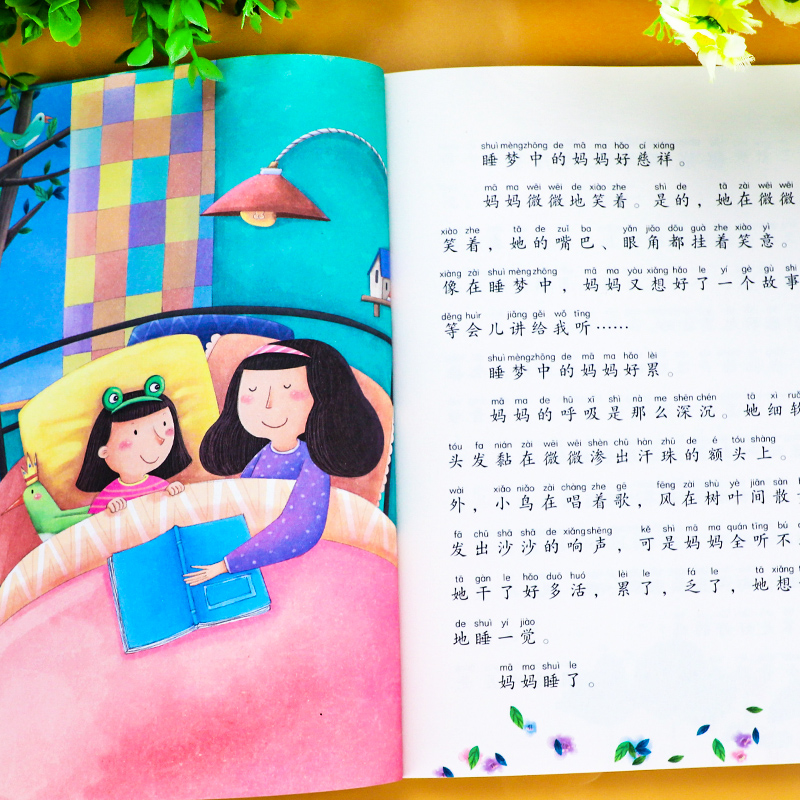 shuì mèng zhōng de mā ma hǎo cí xiáng
睡梦中的妈妈好慈祥。
mā ma wēi wēi de xiào zhe shì de tā zài wēi wēi
妈妈微微地笑着。是的，她在微微
xiào zhe tā de zuǐ ba yǎn jiǎo dōu guà zhe xiào yì
笑着，她的嘴巴、眼角都挂着笑意。
xiàng zài shuì mèng zhōng mā ma yòu xiǎng hǎo le yí gè gù shi
像在睡梦中，妈妈又想好了一个故事
děng huìr jiǎng gěi wǒ tīng
等会儿讲给我听……
shuì mèng zhōng de mā ma hǎo lèi
睡梦中的妈妈好累。
mā ma de hū xī shì nà me shēn chén tā xì ruǎ
妈妈的呼吸是那么深沉。她细软
tóu fa nián zài wēi wēi shèn chū hàn zhū de é tóu shàng
头发黏在微微渗出汗珠的额头上。
wài xiǎo niǎo zài chàng zhe gē fēng zài shù yè jiān sàn
外，小鸟在唱着歌，风在树叶间散
fā chū shā shā de xiǎng shēng kě shì mā ma quán tīng bú
发出沙沙的响声，可是妈妈全听不
tā gàn le hǎo duō huó lèi le fá le tā xiǎng
她干了好多活，累了，乏了，她想
de shuì yí jiào
地睡一觉。
mā ma shuì le
妈妈睡了。